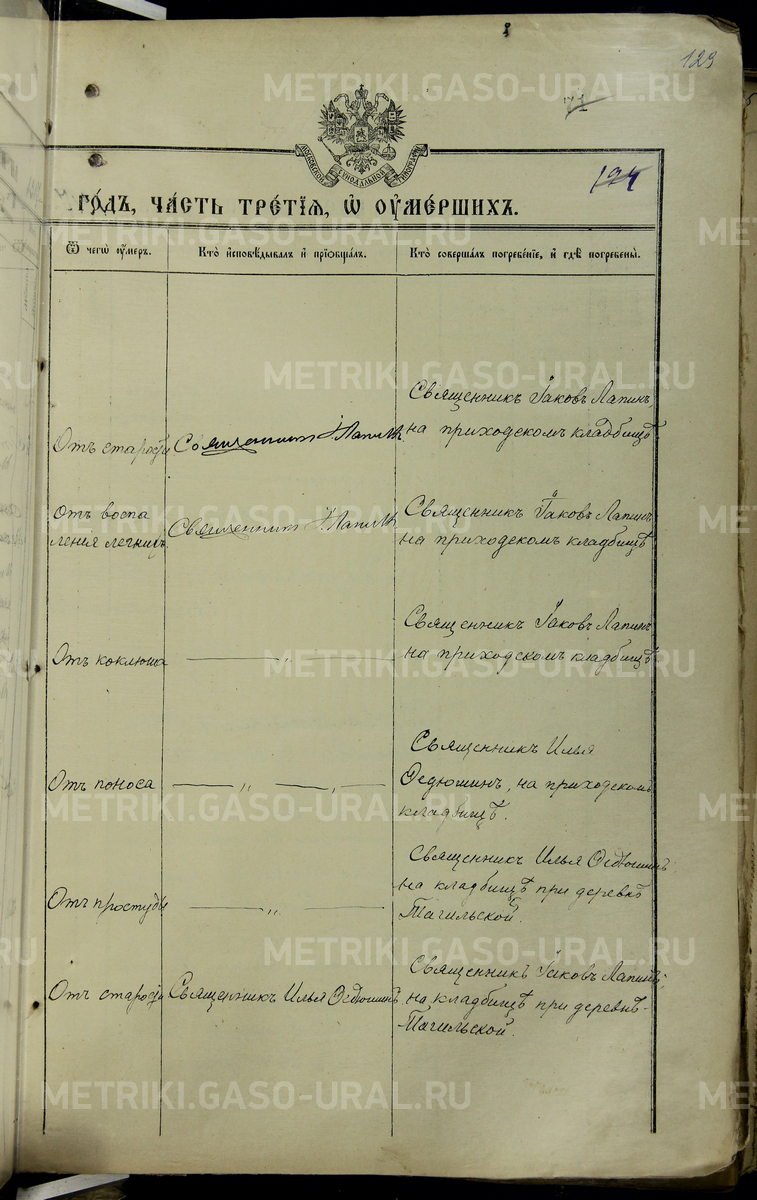 129
71
194
МОСКОВСКОЙ СѴНОДАЛЬНОЙ ТИПОГРАФІИ
ГО́ДЪ, ЧА́СТЬ ТРЕ́ТІѦ, Ѽ ОУМЕ́РШИХЪ.
Ѿ чегѡ̀ оу́меръ.
Кто̀ и҆сповѣ́дывалъ и҆ прїѡбща́лъ.
Кто̀ соверша́лъ погребе́нїе, и҆ гдѣ̀ погребены̀.
Отъ старости
Священникъ І. Лапинъ
Священникъ Іаковъ Лапинъ,
на приходскомъ кладбищѣ
Отъ воспа
ленія легкихъ
Священникъ І. Лапинъ
Священникъ Іаковъ Лапинъ
на приходскомъ кладбищѣ
Отъ коклюша
— „ —
Священникъ Іаковъ Лапинъ
на приходскомъ кладбищѣ
Отъ поноса
— „ — „ —
Священникъ Илья
Ѳедюшинъ, на приходскомъ
кладбищѣ.
Отъ простуды
— „ —
Священникъ Илья Ѳедюшинъ
на кладбищѣ при деревнѣ
Тагильской.
Отъ старости
Священникъ Илья Ѳедюшинъ
Священникъ Іаковъ Лапинъ,
на кладбищѣ при деревнѣ
Тагильской.
METRIKI.GASO-URAL.RU